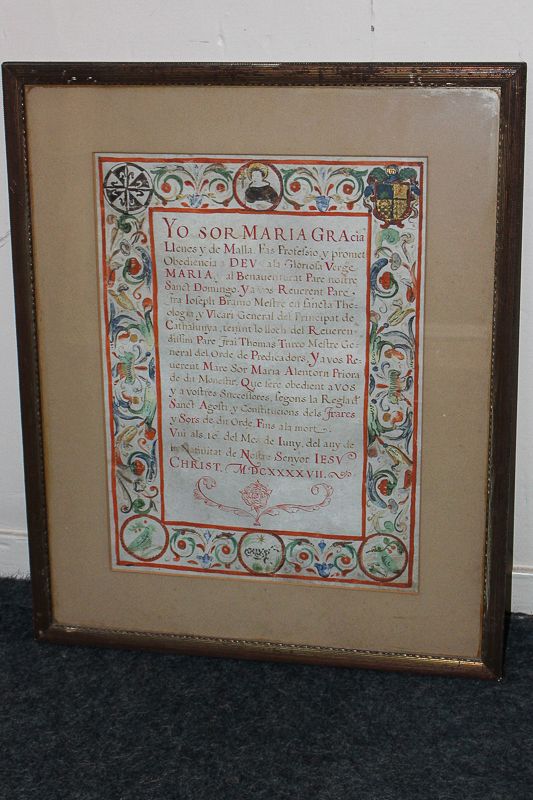 YO SOR MARIA GRAcia
LLenes y de Massa. Fas Professio, y promet
Obediencia a DEV y a la Gloriosa Verge
MARIA, y al Benaventurat Pare nostre
Sanct Domingo. Ya vos Reverent Pare
fra Ioseph Mestre en sancta The-
ologia y Vicari General del Principat de
Cathalunya, tenint lo lloch del Reveren-
dissim Pare frai Thomas Turco Mestre Ge-
neral del Orde de Predicadors. Ya vos Re-
uerent Mare Sor Maria Alentorn Priora
de dit Monestir. Que sere obedient a vos
y a vostres Successores, segons la Regla d
Sanct Agosti, y Constitucions dels frares
y Sors de dit Orde. Fins a la mort.
Vui als 10 del Mes de Iuny. del any de
la Nativitat de Nostre Senyor IESV
CHRIST. MDCXXXXVII.